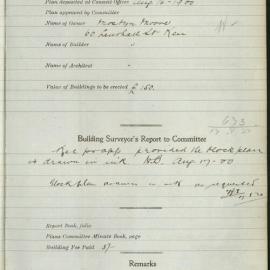 Plan deposited at Council Office Aug 16-1900
Plan approved by Committee
Name of Owner Mostyn Moore
60 Leuchall St
Name of Builder "
Name of Architect "
Value of Buildings to be erected £150.
Building Surveyor's Report to Committee
Rec for app provided the block plan
is drawn in ink Aug 17-00
Block plan drawn in ink as requested
Report Book, folio
Plans Committee Minute Book, page
Building Fee Paid 5/-
Remarks